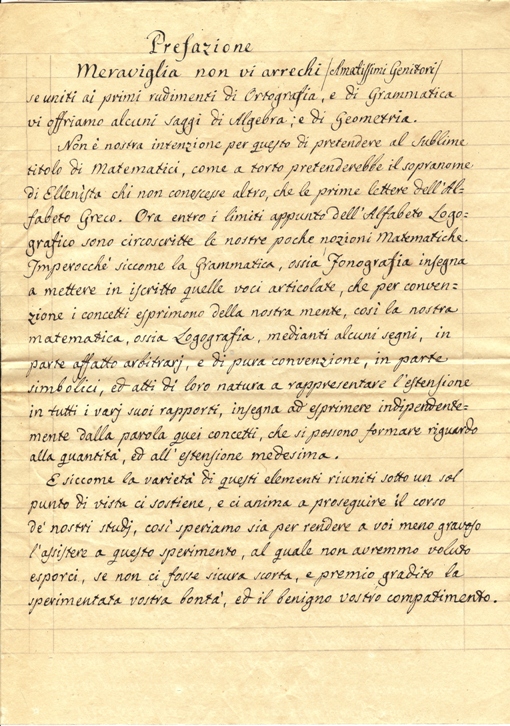 Prefazione
Meraviglia non vi arrechi /Amatissimi Genitori/
se uniti ai primi rudimenti di Ortografia, e di Grammatica
vi offriamo alcuni saggi di Algebra, e di Geometria.
Non è nostra intenzione per questo di pretendere al sublime
titolo di Matematici, come a torto pretenderebbe il soprannome
di Ellenista chi non conoscesse altro, che le prime lettere dell'Al=
fabeto Greco. Ora entro i limiti appunto dell'Alfabeto Logo=
grafico sono circoscritte le nostre poche nozioni Matematiche.
Imperocchè siccome la Grammatica, ossia Fonografia insegna
a mettere in iscritto quelle voci articolate, che per conven=
zione i concetti esprimono della nostra mente, così la nostra
matematica, ossia Logografia, medianti alcuni segni, in
parte affatto arbitrarj, e di pura convenzione, in parte
simbolici, ed atti di loro natura a rappresentare l'estensione
in tutti i varj suoi rapporti, insegna ad esprimere indipendente=
mente dalla parola quei concetti, che si possono formare riguardo
alla quantità, ed all'estensione medesima.
E siccome la varietà di questi elementi riuniti sotto un sol
punto di vista ci sostiene, e ci anima a proseguire il corso
de' nostri studj, così speriamo sia per rendere a voi meno gravoso
l'assistere a questo sperimento, al quale non avremmo voluto
esporci, se non ci fosse sicura scorta, e premio gradito la
sperimentata vostra bontà, ed il benigno vostro compatimento.